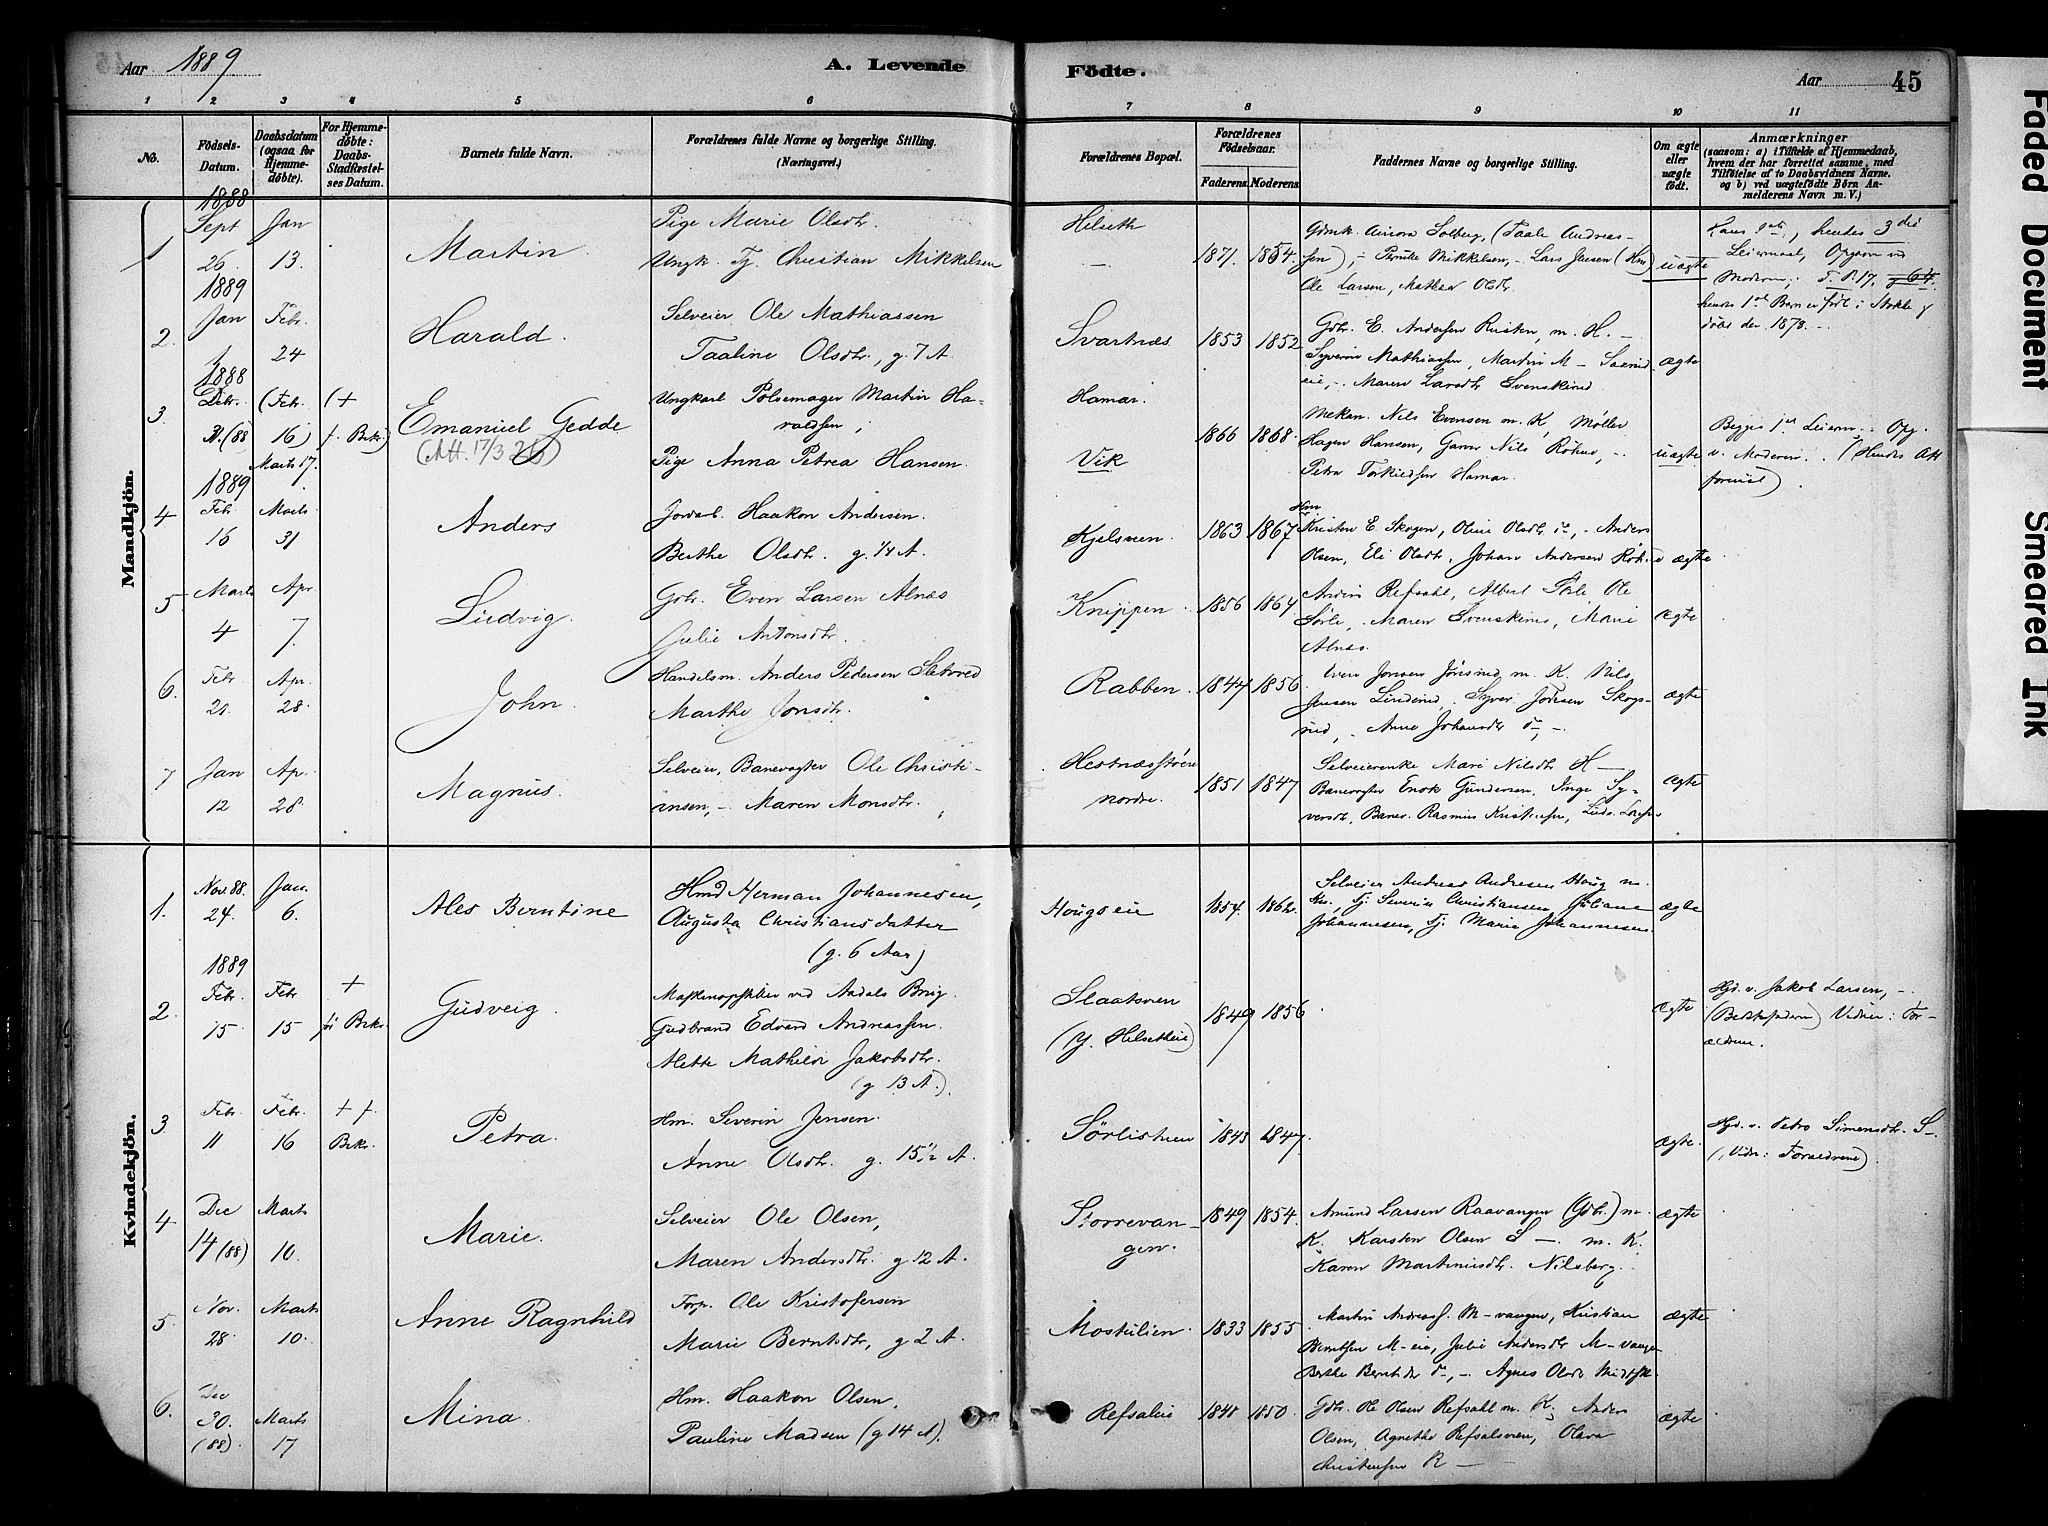 Aar 1889 A. Levende Födte. Aar 45
1 2 3 4 5 6 7 8 9 10 11
No.
Födsels-Datum.
Daabsdatum (ogsaa for Hjemmedöbte).
For Hjemmedöbte: Daabs-Stadfæstelses Datum.
Barnets fulde Navn.
Forældrenes fulde Navne og borgerlige Stilling.
(Næringsvei.)
Forældrenes Bopæl.
Forældrenes Födselsaar.
Faderens Moderens
Faddernes Navne og borgerlige Stilling.
Om ægte eller uægte födt.
Anmærkninger
(saasom: a) i Tilfælde af Hjemmedaab, hvem der har forrettet samme, med Tilföielse af to Daabsvidners Navne. og b) ved uægtefödte Börn Anmelderens Navn m. V.)
Mandkjön.
1888
1 Sept 26 Jan 13. Martin
Pige Marie Olsdtr.
Ungk. Tj. Christian Mikkelsen
Helseth
1871. 1854.
Gdmk. Aurora Solberg, (Taale Andreas-
sen), Mikkelsen, - Lars Jensen (Hm)
Ole Larsen, Mathea Olsdtr.
uægte
Hans hendes 3die
Leiermaal, Opgave ved
Moderen;
hendes 1ste Barn er født i
1878.
1889
2. Jan 1 Febr. 24 Harald.
Selveier Ole Mathiassen
Taaline Olsdtr., g. 7 A.
Svartnæs 1853 1852
Gbr. E. Andersen Rusten, m. H. -
Syverin Mathiassen, Martin M -
eie, - Maren Larsdtr Svenskerud
ægte
1888
3 Debr. (88 (Febr. 16) Marts 17. (+ f. Bekr)
Emanuel Gedde
Ungkarl Pølsemager Martin Ha-
raldsen;
Pige Anna Petrea Hansen.
Hamar.
Vik
1866 1868.
Mekan. Nils Evensen m. K, Møller
Hagen Hansen, Garver Nils Røhne, -
Petra Torkildsen Hamar.
uægte
Begges 1ste Leierm. - Opg.
v. Moderen. (Hendes Att
forevist).
1889
4 Febr. 16 Marts 31 Anders
Jordarb. Haakon Andersen.
Berthe Olsdtr. g. 1/4 A.
Kjelsveen 1863 1867
Kristen E. Skogen, Oline Olsdtr do, - Anders
Olsen, Eli Olsdtr, Johan Andersen
ægte
5 Marts 4 Apr. 7. Ludvig.
Gbr. Even Larsen Alnæs
Julie Antonsdtr.
Knippen. 1856 1864
Refsahl, Albert Ole
Sørli, Maren Svenskerud, Marie
Alnæs.
ægte
6. Febr 21 Apr. 28. John.
Handelsm. Anders Pedersen
Marthe Jonsdtr.
Rabben. 1844 1856
Iver Jonsen Jønsrud m. K. Nils
Jensen Linderud, Syver Jonsen Skogs-
rud, - Anne Johansdtr do, -
ægte
7 Jan 12 Apr. 28. Magnus.
Selveier, Banevogter Ole Christi-
ansen, - Maren Monsdtr.
Hestnæsstøen
nordre.
1851 1847
Selveierenke Mari Nilsdtr H -
Banevogter Enok Gundersen, Inge Sy-
versdt, Banev. Rasmus Kristiansen,
ægte
Kvindekjön.
1. Nov. 88. 24. Jan. 6. Ales Berntine
Hmd Herman Johannesen,
Augusta Christiansdatter
(g. 6 Aar)
Hougseie 1854. 1862.
Selveier Andreas Andresen Houg m.
Kn., Tj. Severin Christiansen, Juliane
Johannesen, Tj. Marie Johannesen.
ægte
1889
2. Febr. 15 Febr 15 + Bekr. Gudveig
Maskinopsidder ved Aadals Brug.
Gudbrand Edvard Andreassen.
Alette Mathilde Jakobsdtr.
(g 13 A).
Slaatsveen
(y. Helsetheie)
1849 1856
ægte
Hjd. v. Jakob Larsen, -
(Bedstefaderen) Vidner: For-
ældrene.
3. Febr 11 Febr. 16 + f. Bekr. Petra.
Hm. Severin Jensen.
Anne Olsdtr. g. 15 1/2 A.
Sørlistuen 1843 1847.
ægte.
Hjd. v. Petra Simensdtr. S -
(Vidn: Forældrene).
4 Dec 14 (88) Marts 10. Marie.
Selveier Ole Olsen,
Maren Andersdtr. g 12 A.
Storrevan-
gen.
1849 1854.
Amund Larsen Raavangen (Gbr.) m.
K. Karsten Olsen S -. m. K.
Karen Martinusdtr. Nilsberg.
ægte
5 Nov. 28. Marts 10. Anne Ragnhild
Forp. Ole Kristofersen
Marie Berntsdtr, g 2 A.
Mostulien. 1833 1855
Martin Andreas. M-vangen, Kristian
Berntsen M-eie, Julie Andersdtr M-vange
Berthe Berntsdtr do, - Agnes Olsdtr
ægte
6. Dec 30. (88). Marts 17 Mina.
Hm. Haakon Olsen,
Pauline Madsen (g 14 A).
Refsaleie 1848 1850.
Gbr. Ole Olsen Refsahl m. K, Anders
Olsen, Agnethe Refsalsveen, Olava
Christensen R -
ægte
Faded Document Smeared Ink